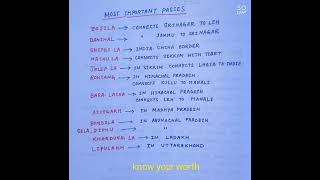 MOST IMPORTANT PASSES
ZOJILA → CONNECTS SRINAGAR TO LEH
BANIHAL → " JAMMU TO SRINAGAR
SHIPKI LA → INDIA CHINA BORDER
NATHU LA → CONNECTS SIKKIM WITH TIBET
JALEP LA → IN SIKKIM CONNECTS LHASA TO INDIA
ROHTANG → IN HIMACHAL PRADESH
CONNECTS KULLU TO MANALI
BARA LACHA → IN HIMACHAL PRADESH
CONNECTS LEH TO MANALI
→ IN MADHYA PRADESH
BOMDILA → IN ARUNACHAL PRADESH
SELA, → "
KHARDUNG LA → IN LADAKH
LIPULEKH → IN UTTARAKHAND
know your worth